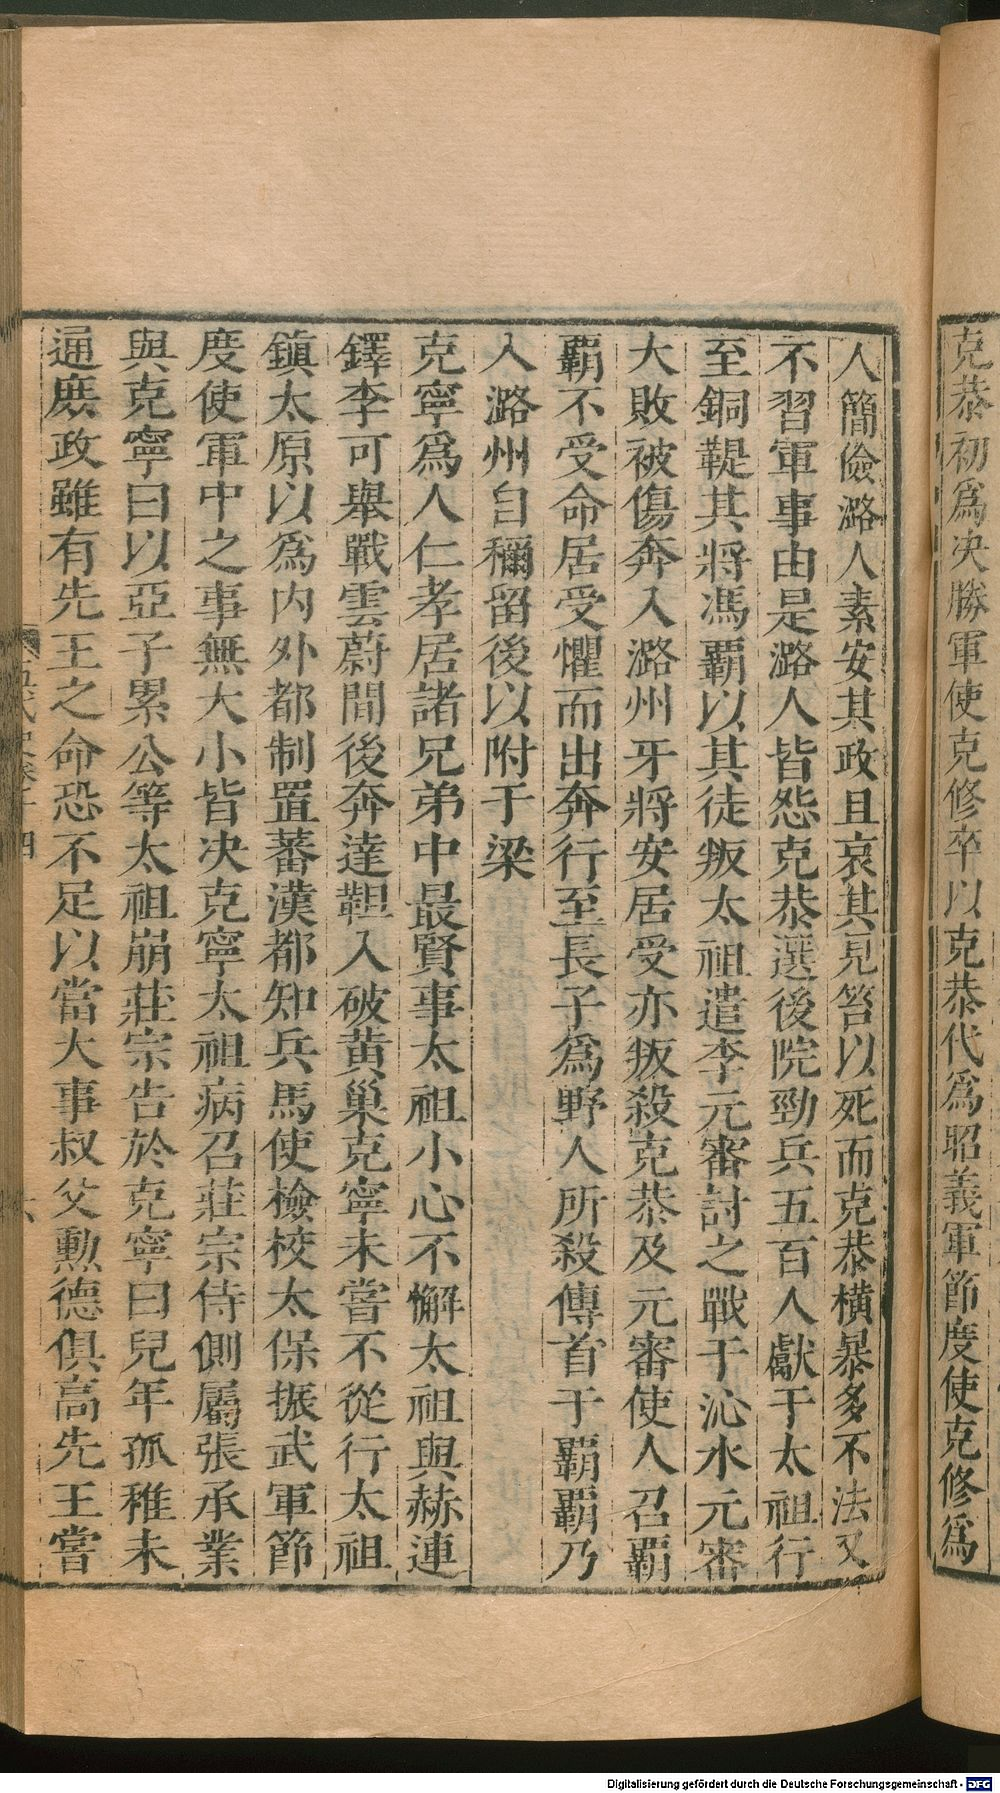 克恭初爲决勝軍使克修卒以克恭代爲昭義軍節度使克修爲
人簡儉潞人素安其政且哀其見笞以死而克恭横暴多不法又
不習軍事由是潞人皆怨克恭選後院勁兵五百人獻于太祖行
至銅鞮其將馮霸以其徒叛太祖遣李元審討之戰于沁水元審
大敗被傷奔入潞州牙將安居受亦叛殺克恭及元審使人召霸
霸不受命居受懼而出奔行至長子爲野人所殺傳首于霸霸乃
入潞州自稱留後以附于梁
克寧爲人仁孝居諸兄弟中最賢事太祖小心不懈太祖與赫連
鐸李可舉戰雲蔚間後奔達靼入破黄巢克寧未嘗不從行太祖
鎮太原以爲内外都制置蕃漢都知兵馬使檢校太保振武軍節
度使軍中之事無大小皆决克寧太祖病召莊宗侍側屬張承業
與克寧曰以亞子累公等太祖崩莊宗告於克寧曰兒年孤稚未
通庶政雖有先王之命恐不足以當大事叔父勲德俱高先王嘗
五代史卷十四
六
Digitalisierung gefördert durch die Deutsche Forschungsgemeinschaft - DFG